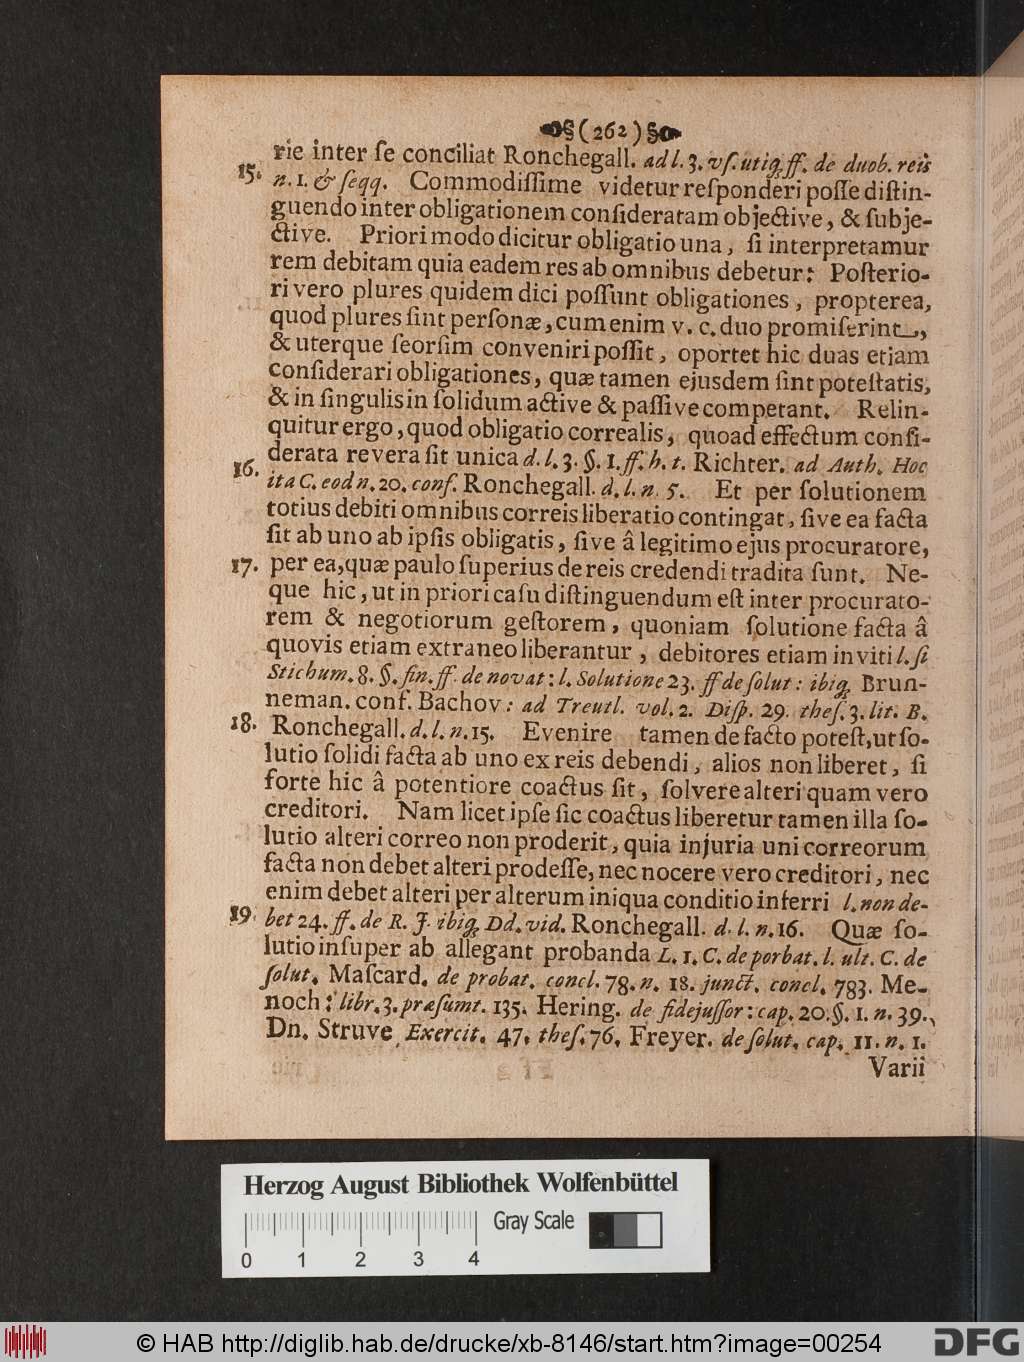 §(262)§
rie inter ſe conciliat Ronchegall. ad l. 3. vſ. utiq; ff. de duob. reis
15. n. 1. & ſeqq. Commodiſſime videtur reſponderi poſſe diſtin-
guendo inter obligationem conſideratam objective, & ſubje-
ctive. Priori modo dicitur obligatio una, ſi interpretamur
rem debitam quia eadem res ab omnibus debetur: Poſterio-
ri vero plures quidem dici poſſunt obligationes, propterea,
quod plures ſint perſonæ, cum enim v. c. duo promiſerint,
& uterque ſeorſim conveniri poſſit, oportet hic duas etiam
conſiderari obligationes, quæ tamen ejusdem ſint poteſtatis,
& in ſingulis in ſolidum active & paſſive competant. Relin-
quitur ergo, quod obligatio correalis, quoad effectum conſi-
16. derata revera ſit unica d. l. 3. §. 1. ff. h. t. Richter. ad Auth. Hoc
ita C. eod n. 20. conf. Ronchegall. d. l. n. 5. Et per ſolutionem
totius debiti omnibus correis liberatio contingat, ſive ea facta
ſit ab uno ab ipſis obligatis, ſive â legitimo ejus procuratore,
17. per ea, quæ paulo ſuperius de reis credendi tradita ſunt. Ne-
que hic, ut in priori caſu diſtinguendum eſt inter procurato-
rem & negotiorum geſtorem, quoniam ſolutione facta â
quovis etiam extraneo liberantur, debitores etiam inviti l. ſi
Stichum. 8. §. fin. ff. de novat: l. Solutione 23. ff de ſolut: ibiq; Brun-
neman. conf. Bachov: ad Treutl. vol. 2. Diſp. 29. theſ. 3. lit. B.
18. Ronchegall. d. l. n. 15. Evenire tamen de facto poteſt, ut ſo-
lutio ſolidi facta ab uno ex reis debendi, alios non liberet, ſi
forte hic â potentiore coactus ſit, ſolvere alteri quam vero
creditori. Nam licet ipſe ſic coactus liberetur tamen illa ſo-
lutio alteri correo non proderit, quia injuria uni correorum
facta non debet alteri prodeſſe, nec nocere vero creditori, nec
enim debet alteri per alterum iniqua conditio inferri l. non de-
19. bet 24. ff. de R. J. ibiq; Dd. vid. Ronchegall. d. l. n. 16. Quæ ſo-
lutio inſuper ab allegant probanda L. 1. C. de porbat. l. ult. C. de
ſolut. Maſcard. de probat. concl. 78. n. 18. junct. concl. 783. Me-
noch: libr. 3. præſumt. 135. Hering. de fidejuſſor: cap. 20. §. 1. n. 39.
Dn. Struve Exercit. 47. theſ. 76. Freyer. de ſolut. cap. 11. n. 1.
Varii
Herzog August Bibliothek Wolfenbüttel
Gray Scale
0 1 2 3 4
© HAB http://diglib.hab.de/drucke/xb-8146/start.htm?image=00254
DFG